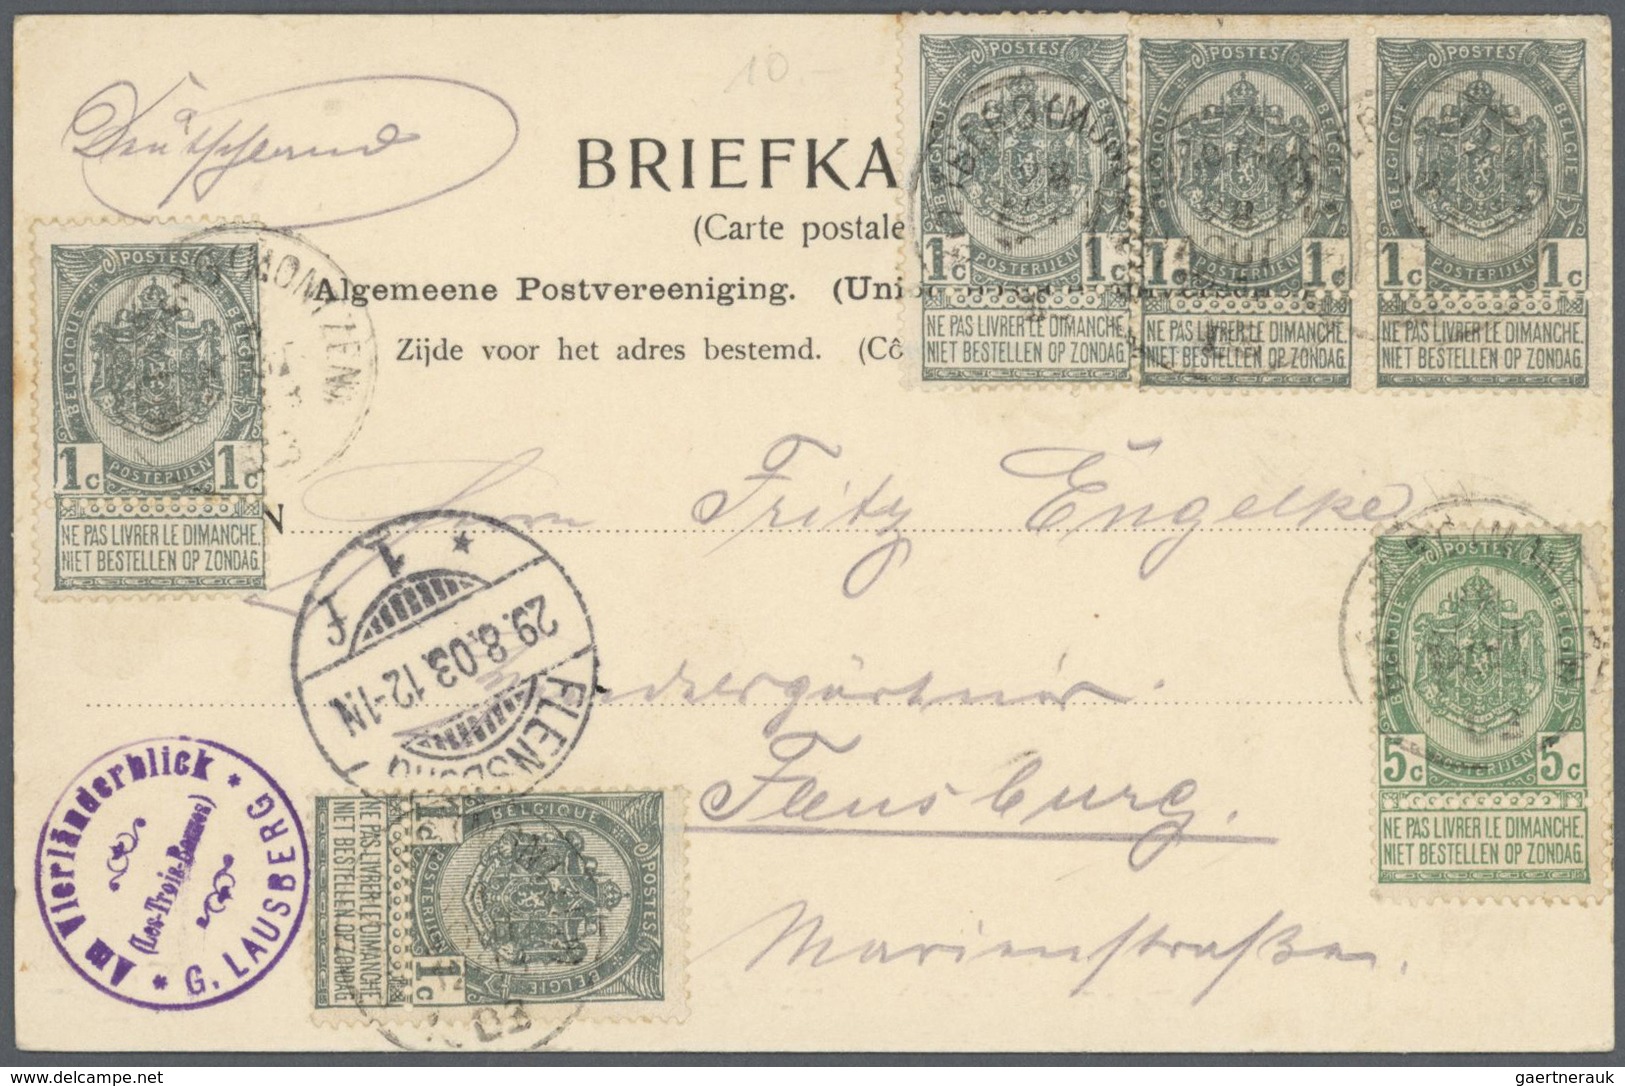 10.-
Deutschland
BRIEFKA
(Carte postale
Algemeene Postvereeniging. (Uni
Zijde voor het adres bestemd. (Cô
POSTES
BELGIQUE BELGIE
1c 1c
POSTERIJEN
NE PAS LIVRER LE DIMANCHE.
NIET BESTELLEN OP ZONDAG.
POSTES
BELGIQUE BELGIE
1c 1c
POSTERIJEN
NE PAS LIVRER LE DIMANCHE.
NIET BESTELLEN OP ZONDAG.
POSTES
BELGIQUE BELGIE
1c 1c
POSTERIJEN
NE PAS LIVRER LE DIMANCHE.
NIET BESTELLEN OP ZONDAG.
AOUT
POSTES
BELGIQUE BELGIE
1c 1c
POSTERIJEN
NE PAS LIVRER LE DIMANCHE.
NIET BESTELLEN OP ZONDAG.
(MONTZEN)
N
Herrn Fritz Engelke
FLENSBURG
* 1 f
29.8.03. 12-1N
Flensburg.
Marienstraße.
POSTES
BELGIQUE BELGIE
5c 5c
POSTERIJEN
NE PAS LIVRER LE DIMANCHE.
NIET BESTELLEN OP ZONDAG.
Am Vierländerblick
(Les-Trois-Bornes)
* G. LAUSBERG *
POSTES
BELGIQUE BELGIE
1c 1c
POSTERIJEN
NE PAS LIVRER LE DIMANCHE.
NIET BESTELLEN OP ZONDAG.
03
delcampe.net
gaertnerauk